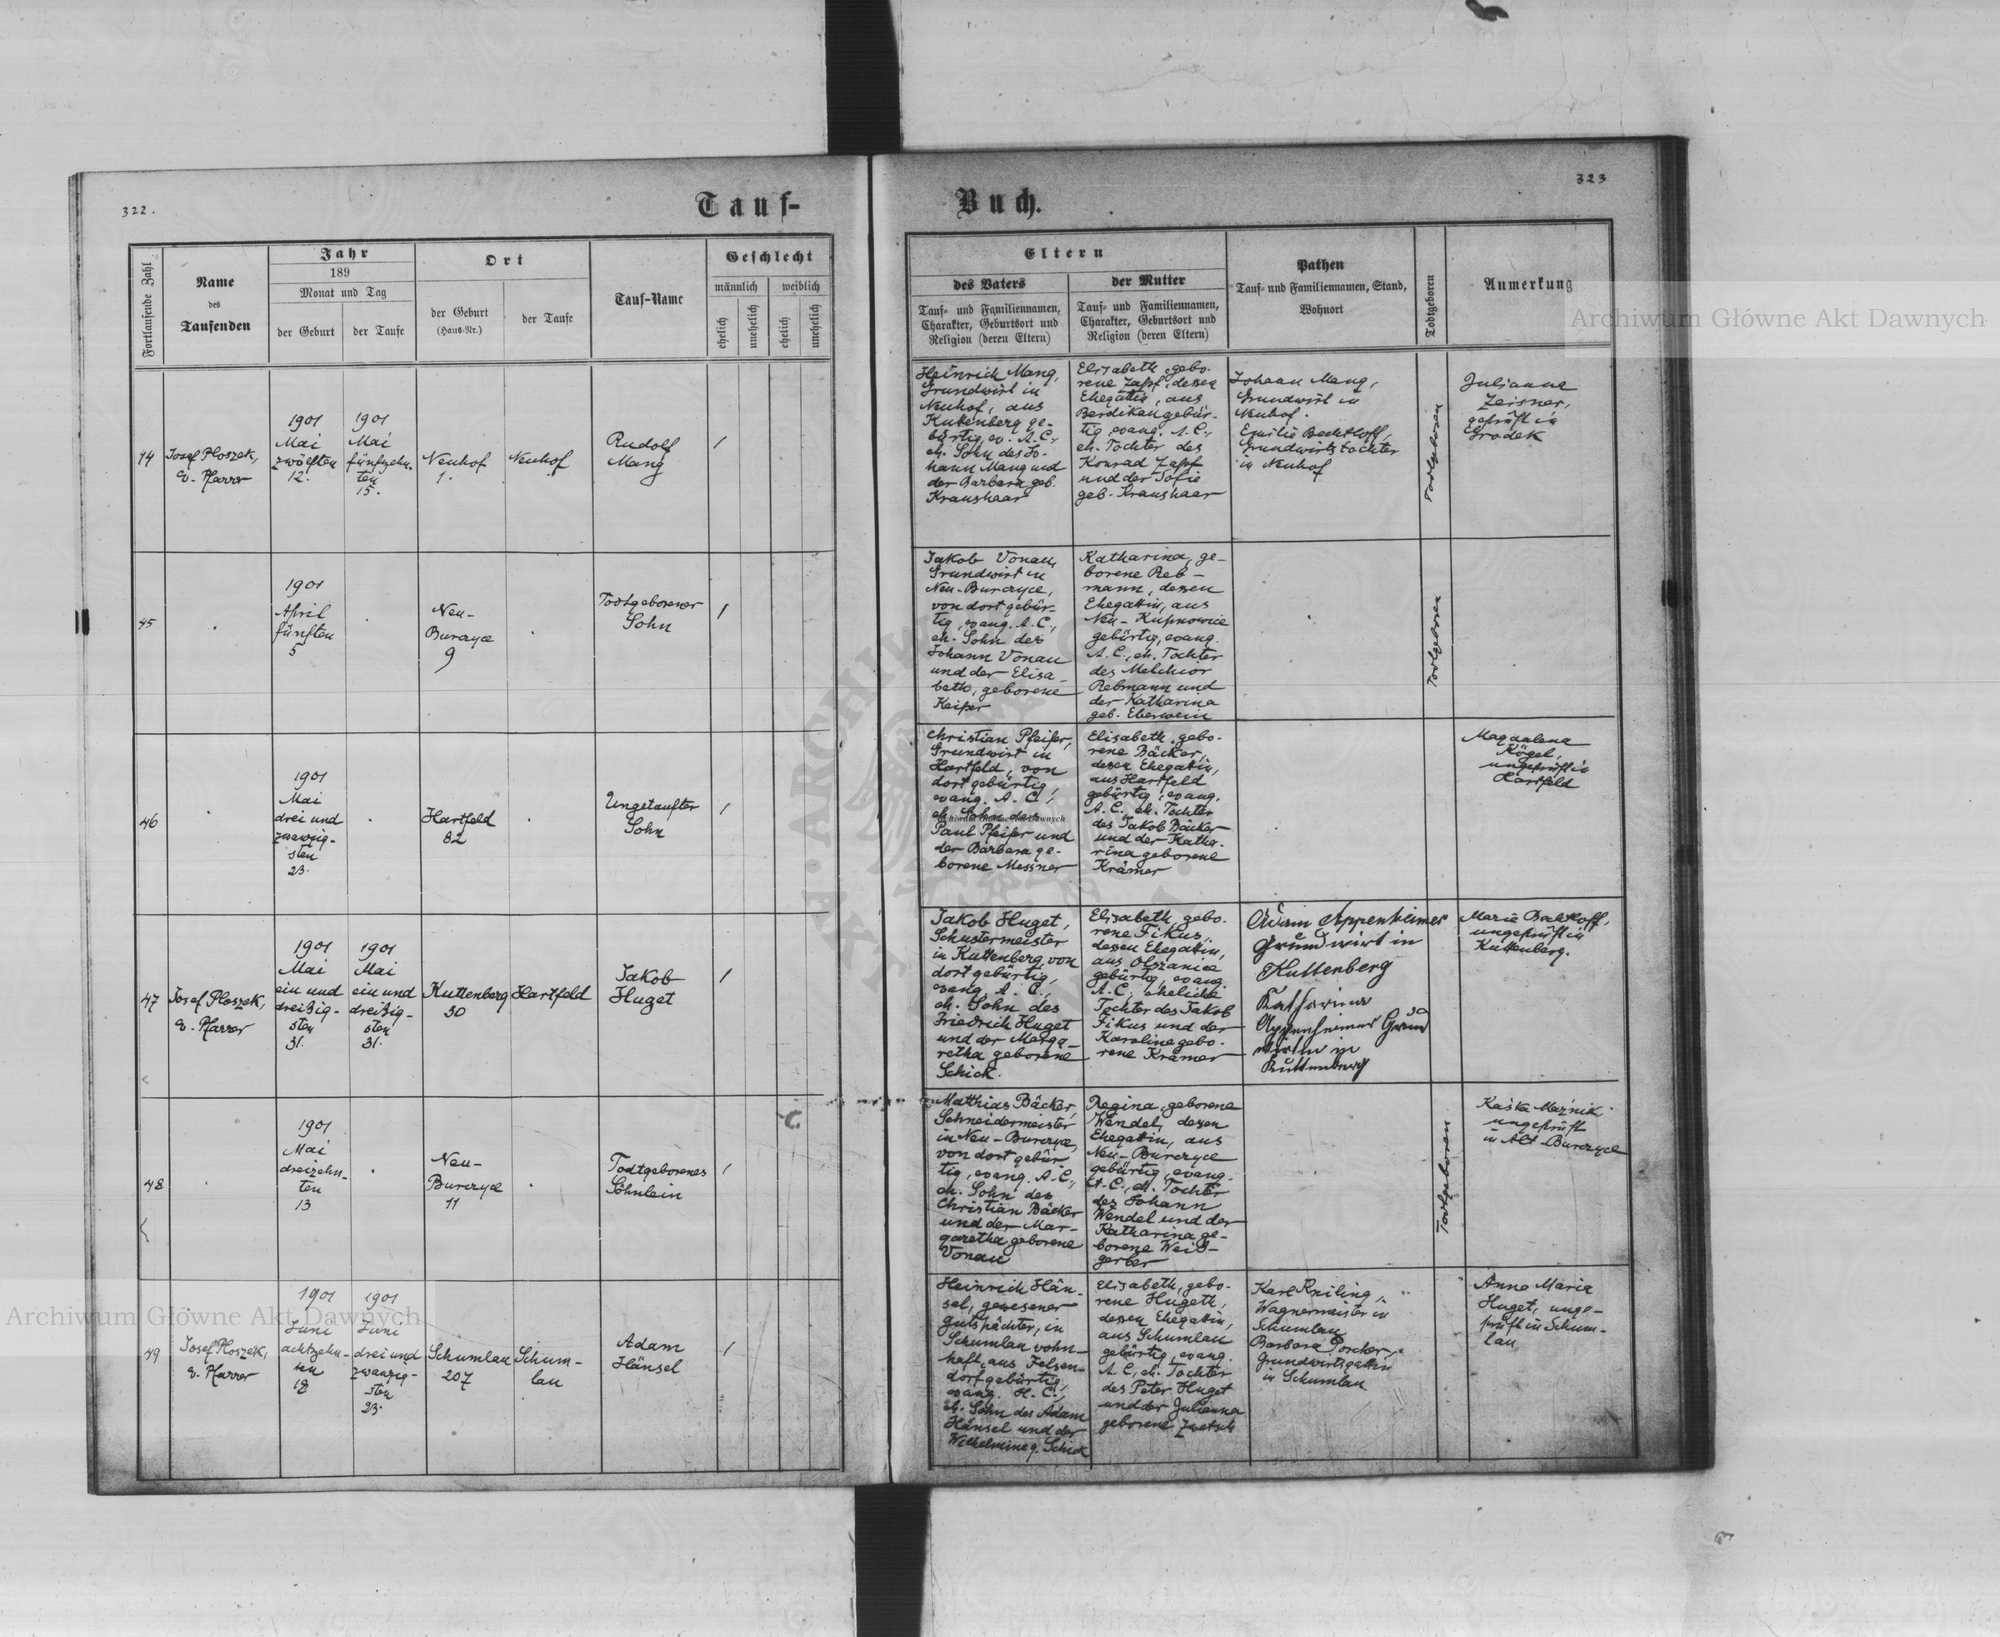 322.
Tauf-
Fortlaufende Zahl
Name
des
Taufenden
Jahr
189
Monat und Tag
der Geburt
der Taufe
Ort
der Geburt
(Haus-Nr.)
der Taufe
Tauf-Name
Geschlecht
männlich
weiblich
ehelich
unehelich
ehelich
unehelich
44
Josef Ploszek,
ev. Pfarrer
1901
Mai
zwölften
12.
1901
Mai
fünfzehn-
ten
15.
Neuhof
1.
Neuhof
Rudolf
Mang
/
45
1901
April
fünften
5
Neu-
Burczyce
9
Todtgeborener
Sohn
/
46
1901
Mai
drei und
zwanzig-
sten
23.
Hartfeld
82
Ungetaufter
Sohn
/
47
Josef Ploszek,
ev. Pfarrer
1901
Mai
ein und
dreißig-
sten
31.
1901
Mai
ein und
dreißig-
sten
31.
Kuttenberg
30
Hartfeld
Jakob
Huget
/
48
1901
Mai
dreizehn-
ten
13
Neu-
Burczyce
11
Todtgeborenes
Söhnlein
/
49
Josef Ploszek,
ev. Pfarrer
1901
Juni
achtzehn-
ten
18
1901
Juni
drei und
zwanzig-
sten
23.
Schumlau
207
Schum-
lau
Adam
Hänsel
/
323
Buch.
Eltern
des Vaters
Tauf- und Familiennamen,
Charakter, Geburtsort und
Religion (deren Eltern)
der Mutter
Tauf- und Familiennamen,
Charakter, Geburtsort und
Religion (deren Eltern)
Pathen
Tauf- und Familiennamen, Stand,
Wohnort
Todtgeboren
Anmerkung
Heinrich Mang,
Grundwirt in
Neuhof, aus
Kuttenberg ge-
bürtig, ev. A.C.,
eh. Sohn des Jo-
hann Mang und
der Barbara geb.
Kraushaar
Elisabeth, gebo-
rene Zapf, dessen
Ehegattin, aus
Berdikau gebür-
tig, evang. A.C.,
eh. Tochter des
Konrad Zapf
und der Sofie
geb. Kraushaar
Johann Mang,
Grundwirt in
Neuhof.
Emilie Bechtloff,
Grundwirtstochter
in Neuhof
Todtgeboren
Julianna
Zeisner,
geprüft in
Grodek
Jakob Vonau,
Grundwirt in
Neu-Burczyce,
von dort gebür-
tig, evang. A.C.,
eh. Sohn des
Johann Vonau
und der Elisa-
beth, geborene
Keiper
Katharina, ge-
borene Reb-
mann, dessen
Ehegattin, aus
Neu-Kupnowice
gebürtig, evang.
A.C., eh. Tochter
des Melchior
Rebmann und
der Katharina
geb. Eberwein
Todtgeboren
Christian Pfeifer,
Grundwirt in
Hartfeld, von
dort gebürtig,
evang. A.C.,
eh. Sohn des
Paul Pfeifer und
der Barbara ge-
borene Messner
Elisabeth, gebo-
rene Bäcker,
dessen Ehegattin,
aus Hartfeld
gebürtig, evang.
A.C. eh. Tochter
des Jakob Bäcker
und der Katha-
rina geborene
Krämer
Magdalena
Kögel,
ungeprüft in
Hartfeld
Jakob Huget,
Schustermeister
in Kuttenberg, von
dort gebürtig,
evang. A.C.,
eh. Sohn des
Friedrich Huget
und der Marga-
retha geborene
Schick.
Elisabeth, gebo-
rene Fikus,
dessen Ehegattin,
aus Olszanica
gebürtig, evang.
A.C. eheliche
Tochter des Jakob
Fikus und der
Karoline gebo-
rene Krämer
Adam Appenheimer
Grundwirt in
Kuttenberg
Katharina
Appenheimer Grund
wirtin in
Kuttenberg
Marie
ungeprüft in
Kuttenberg.
Matthias Bäcker,
Schneidermeister
in Neu-Burczyce,
von dort gebür-
tig, evang. A.C.,
eh. Sohn des
Christian Bäcker
und der Mar-
garetha geborene
Vonau
Regina, geborene
Wendel, dessen
Ehegattin, aus
Neu-Burczyce
gebürtig, evang.
A.C., eh. Tochter
des Johann
Wendel und der
Katharina ge-
borene Weiß-
gerber
Todtgeboren
Kaśka Maźnik
ungeprüft
in Alt-Burczyce
Heinrich Hän-
sel, gewesener
Gutspächter, in
Schumlau wohn-
haft, aus Felsen-
dorf gebürtig,
evang. H.C.,
eh. Sohn des Adam
Hänsel und der
Wilhelmine g. Schick
Elisabeth, gebo-
rene Hugeth,
dessen Ehegattin,
aus Schumlau
gebürtig, evang.
A.C., eh. Tochter
des Peter Huget
und der Julianna
geborene Zwetsch
Karl Kniling,
Wagnermeister in
Schumlau
Barbara Porcher,
Grundwirtsgattin
in Schumlau
Anna Maria
Huget, unge-
prüft in Schum-
lau
Archiwum Główne Akt Dawnych
Archiwum Główne Akt Dawnych
Archiwum Główne Akt Dawnych